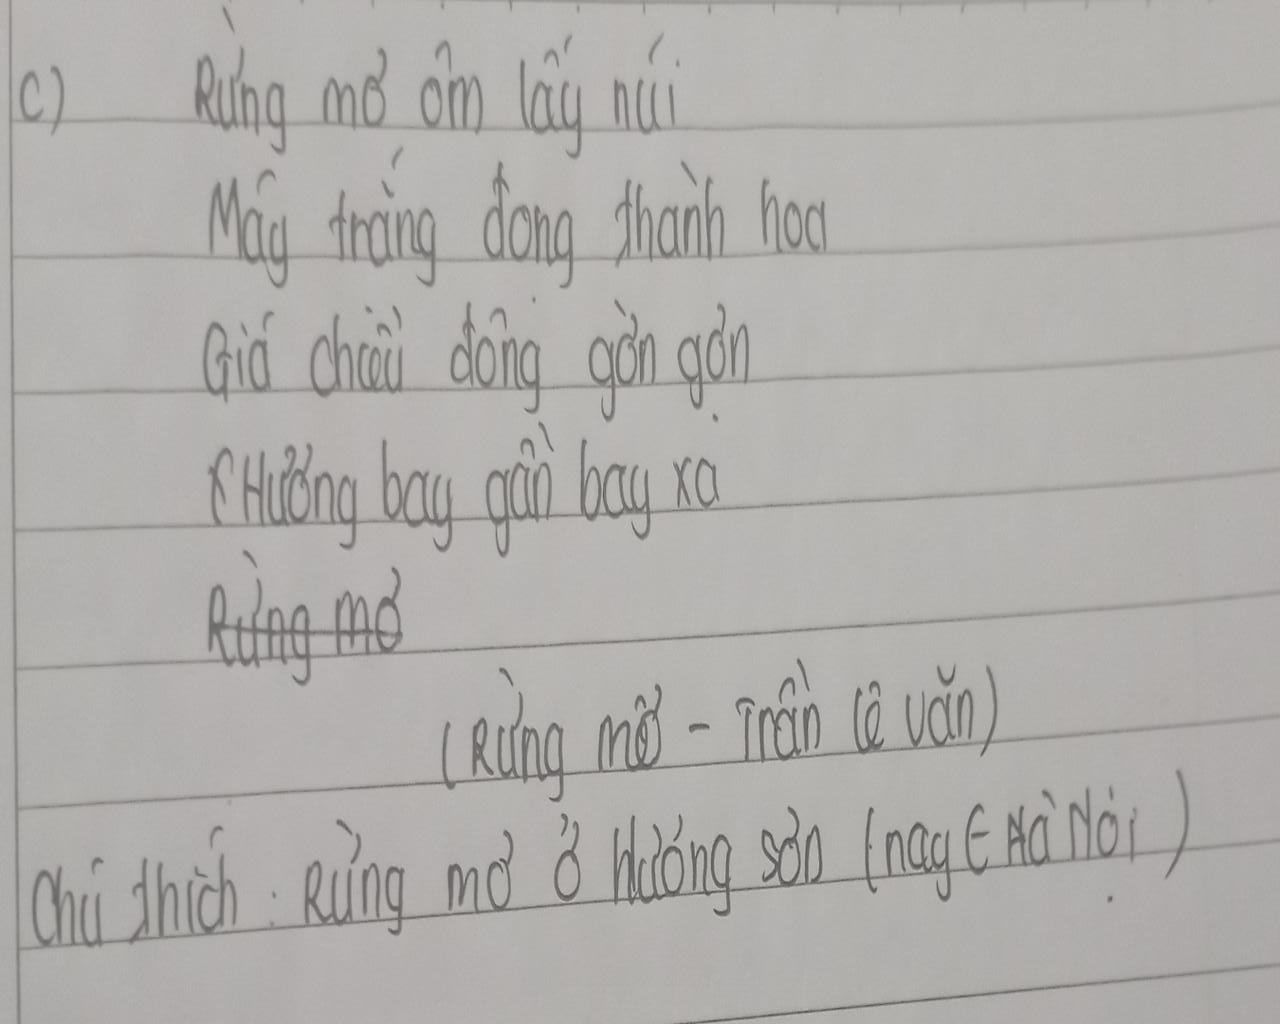 c) Rừng mơ ôm lấy núi
Mây trắng đọng thành hoa
Gió chiều đông gờn gợn
Hương bay gần bay xa
Rừng mơ
(Rừng mơ - Trần Lê Văn)
Chú thích: Rừng mơ ở Hương Sơn (nay ∈ Hà Nội)